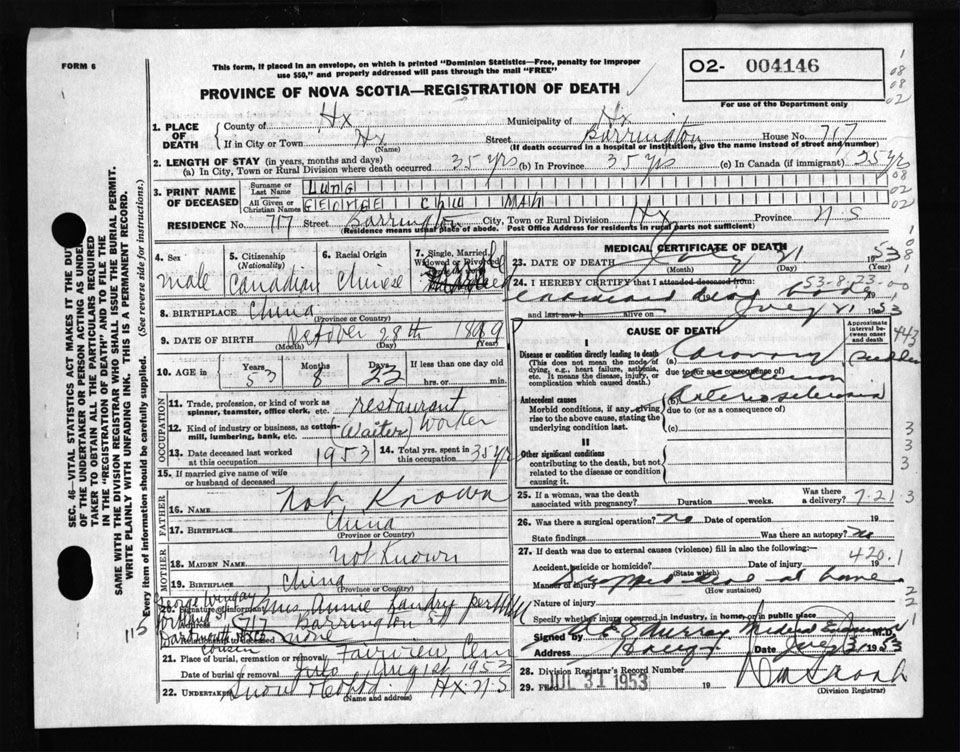 FORM 6
This form, if placed in an envelope, on which is printed "Dominion Statistics—Free, penalty for improper
use $50," and properly addressed will pass through the mail "FREE"
PROVINCE OF NOVA SCOTIA—REGISTRATION OF DEATH
O2- 004146
For use of the Department only
1. PLACE OF DEATH
County of Hx Municipality of Hx
If in City or Town Hx (Name) Street Barrington House No. 717
(If death occurred in a hospital or institution, give the name instead of street and number)
2. LENGTH OF STAY (in years, months and days)
(a) In City, Town or Rural Division where death occurred 35 yrs (b) In Province 35 yrs (c) In Canada (if immigrant) 35 yrs
3. PRINT NAME OF DECEASED
Surname or Last Name Lung
All Given or Christian Names GEORGE Chu Mah
RESIDENCE No. 717 Street Barrington City, Town or Rural Division Hx Province N.S
(Residence means usual place of abode. Post Office Address for residents in rural parts not sufficient)
4. Sex male
5. Citizenship (Nationality) Canadian
6. Racial Origin Chinese
7. Single, Married, Widowed or Divorced
8. BIRTHPLACE China
(Province or Country)
9. DATE OF BIRTH October 28th 1899
(Month) (Day) (Year)
10. AGE in Years 53 Months 8 Days 23 If less than one day old hrs. or min.
OCCUPATION
11. Trade, profession, or kind of work as spinner, teamster, office clerk, etc. restaurant
12. Kind of industry or business, as cotton-mill, lumbering, bank, etc. (Waiter) Worker
13. Date deceased last worked at this occupation 1953
14. Total yrs. spent in this occupation 35 yrs
15. If married give name of wife or husband of deceased
FATHER
16. NAME Not Known
17. BIRTHPLACE China
(Province or Country)
MOTHER
18. MAIDEN NAME Not Known
19. BIRTHPLACE China
(Province or Country)
20. Signature of informant Mrs Annie Landry
Address 717 Barrington St
Relationship to deceased none
cousin
115
21. Place of burial, cremation or removal Fairview Cem
Date of burial or removal Aug 1st 1953
22. UNDERTAKER Snow & Co Ltd Hx. N.S.
(Name and address)
MEDICAL CERTIFICATE OF DEATH
23. DATE OF DEATH July 21 1953
(Month) (Day) (Year)
24. I HEREBY CERTIFY that I attended deceased from:
53-8-23-00
examined dead body
and last saw h alive on July 21 1953
CAUSE OF DEATH
Approximate interval between onset and death
I
Disease or condition directly leading to death
(This does not mean the mode of dying, e.g., heart failure, asthenia, etc. It means the disease, injury, or complication which caused death.)
(a) Coronary
due to (or as a consequence of)
Antecedent causes
Morbid conditions, if any, giving rise to the above cause, stating the underlying condition last.
(b) Arteriosclerosis
due to (or as a consequence of)
(c)
443
II
Other significant conditions
contributing to the death, but not related to the disease or condition causing it.
25. If a woman, was the death associated with pregnancy? Duration weeks. Was there a delivery? 7-21-3
26. Was there a surgical operation? no Date of operation 19
State findings Was there an autopsy? no
27. If death was due to external causes (violence) fill in also the following:—
Accident, suicide or homicide? (State which) 19
420.1
Manner of injury Dropped dead at home
(How sustained)
Nature of injury
Specify whether injury occurred in industry, in home, or in public place
Signed by Murray Medical Examiner M.D.
Address Date July 31 1953
28. Division Registrar's Record Number
29. Filed JUL 31 1953 19
(Division Registrar)
SEC. 46—VITAL STATISTICS ACT MAKES IT THE DUTY
OF THE UNDERTAKER OR PERSON ACTING AS UNDER-
TAKER TO OBTAIN ALL THE PARTICULARS REQUIRED
IN THE "REGISTRATION OF DEATH" AND TO FILE THE
SAME WITH THE DIVISION REGISTRAR WHO SHALL ISSUE THE BURIAL PERMIT.
WRITE PLAINLY WITH UNFADING INK. THIS IS A PERMANENT RECORD.
Every item of information should be carefully supplied. (See reverse side for instructions.)